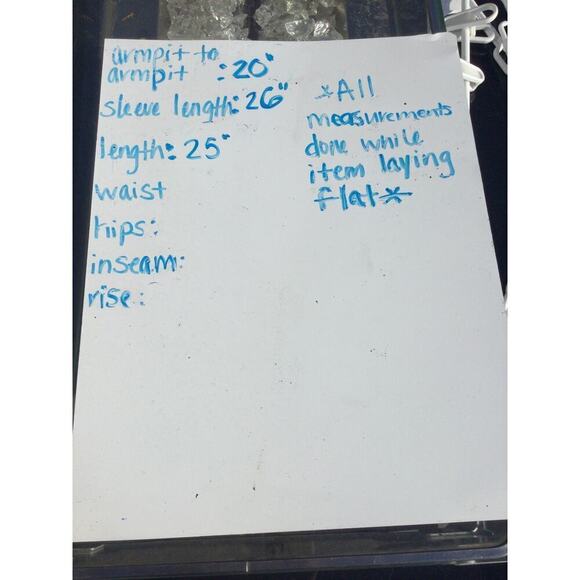 armpit to
armpit : 20"
sleeve length: 26"
length: 25"
waist
hips:
inseam:
rise:
*All
measurements
done while
item laying
flat*